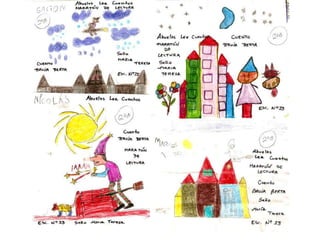 Abuelos Lea Cuentos
MARATÓN DE
LECTURA
Seño
MARIA
TERESA
CUENTO
BRUJA BERTA
Esc. Nº 29
Abuelos Lea Cuentos
MARATÓN
DE
LECTURA
Seño
MARIA
TERESA
CUENTO
BRUJA BERTA
Esc. Nº 29
NICOLÁS
Abuelos Lea Cuentos
Cuento
BRUJA BERTA
MARATÓN
DE
LECTURA
Esc. Nº 29 Seño Maria Teresa
Abuelos
Lea Cuentos
MARATÓN DE
LECTURA
Cuento
BRUJA BERTA
Seño
Maria
Teresa
Esc. Nº 29